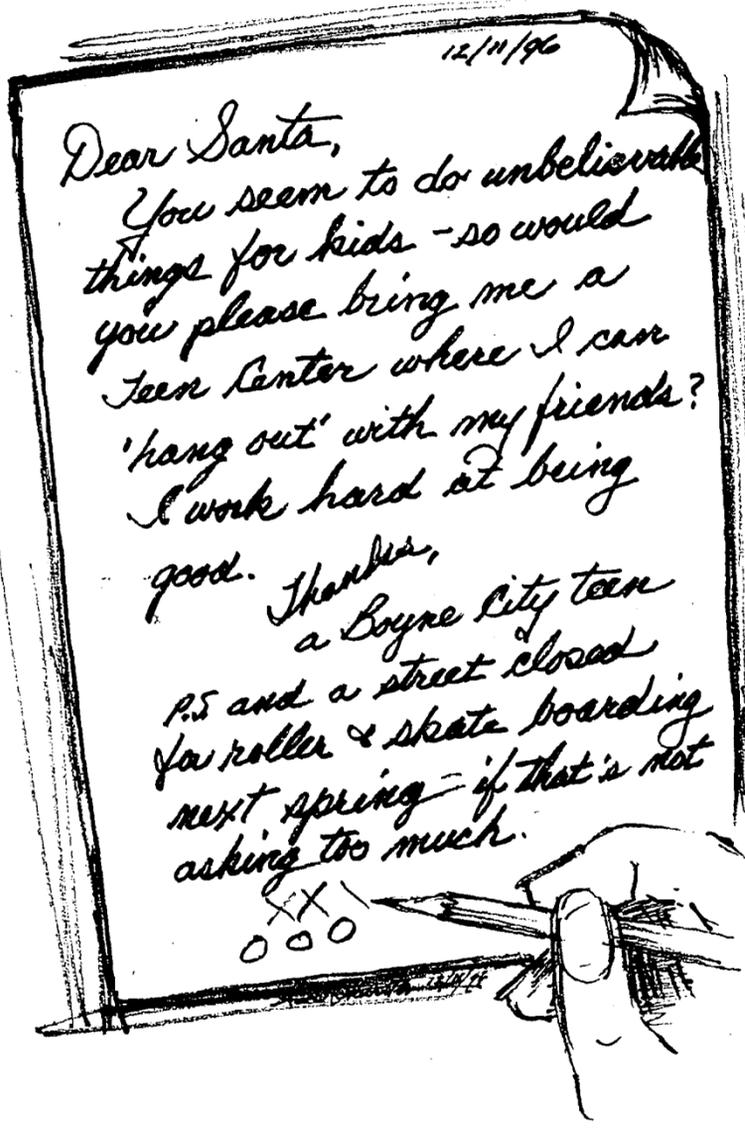 12/11/96
Dear Santa,
You seem to do unbelievable
things for kids - so would
you please bring me a
Teen Center where I can
'hang out' with my friends?
I work hard at being
good.
Thanks,
a Boyne City teen
P.S and a street closed
for roller & skate boarding
next spring - if that's not
asking too much.
XX\
OOO